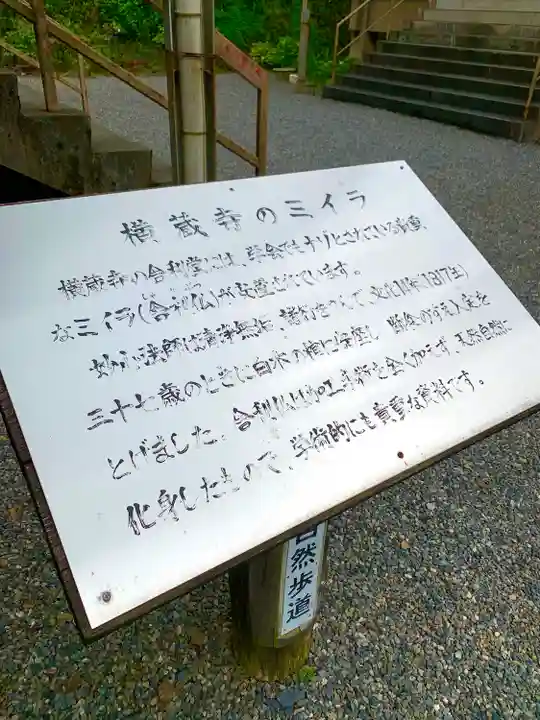 横蔵寺のミイラ
横蔵寺の舎利堂には、学会でもナゾとされている貴重
なミイラ(舎利仏)が安置されています。
妙心法師は 諸行をつんで、文化
三十七歳のときに白木の棺に 、断食のうえ入定を
とげました。舎利仏は加工手術を全く加えず、天然自然に
化身したもので、学術的にも貴重な資料です。
自然歩道